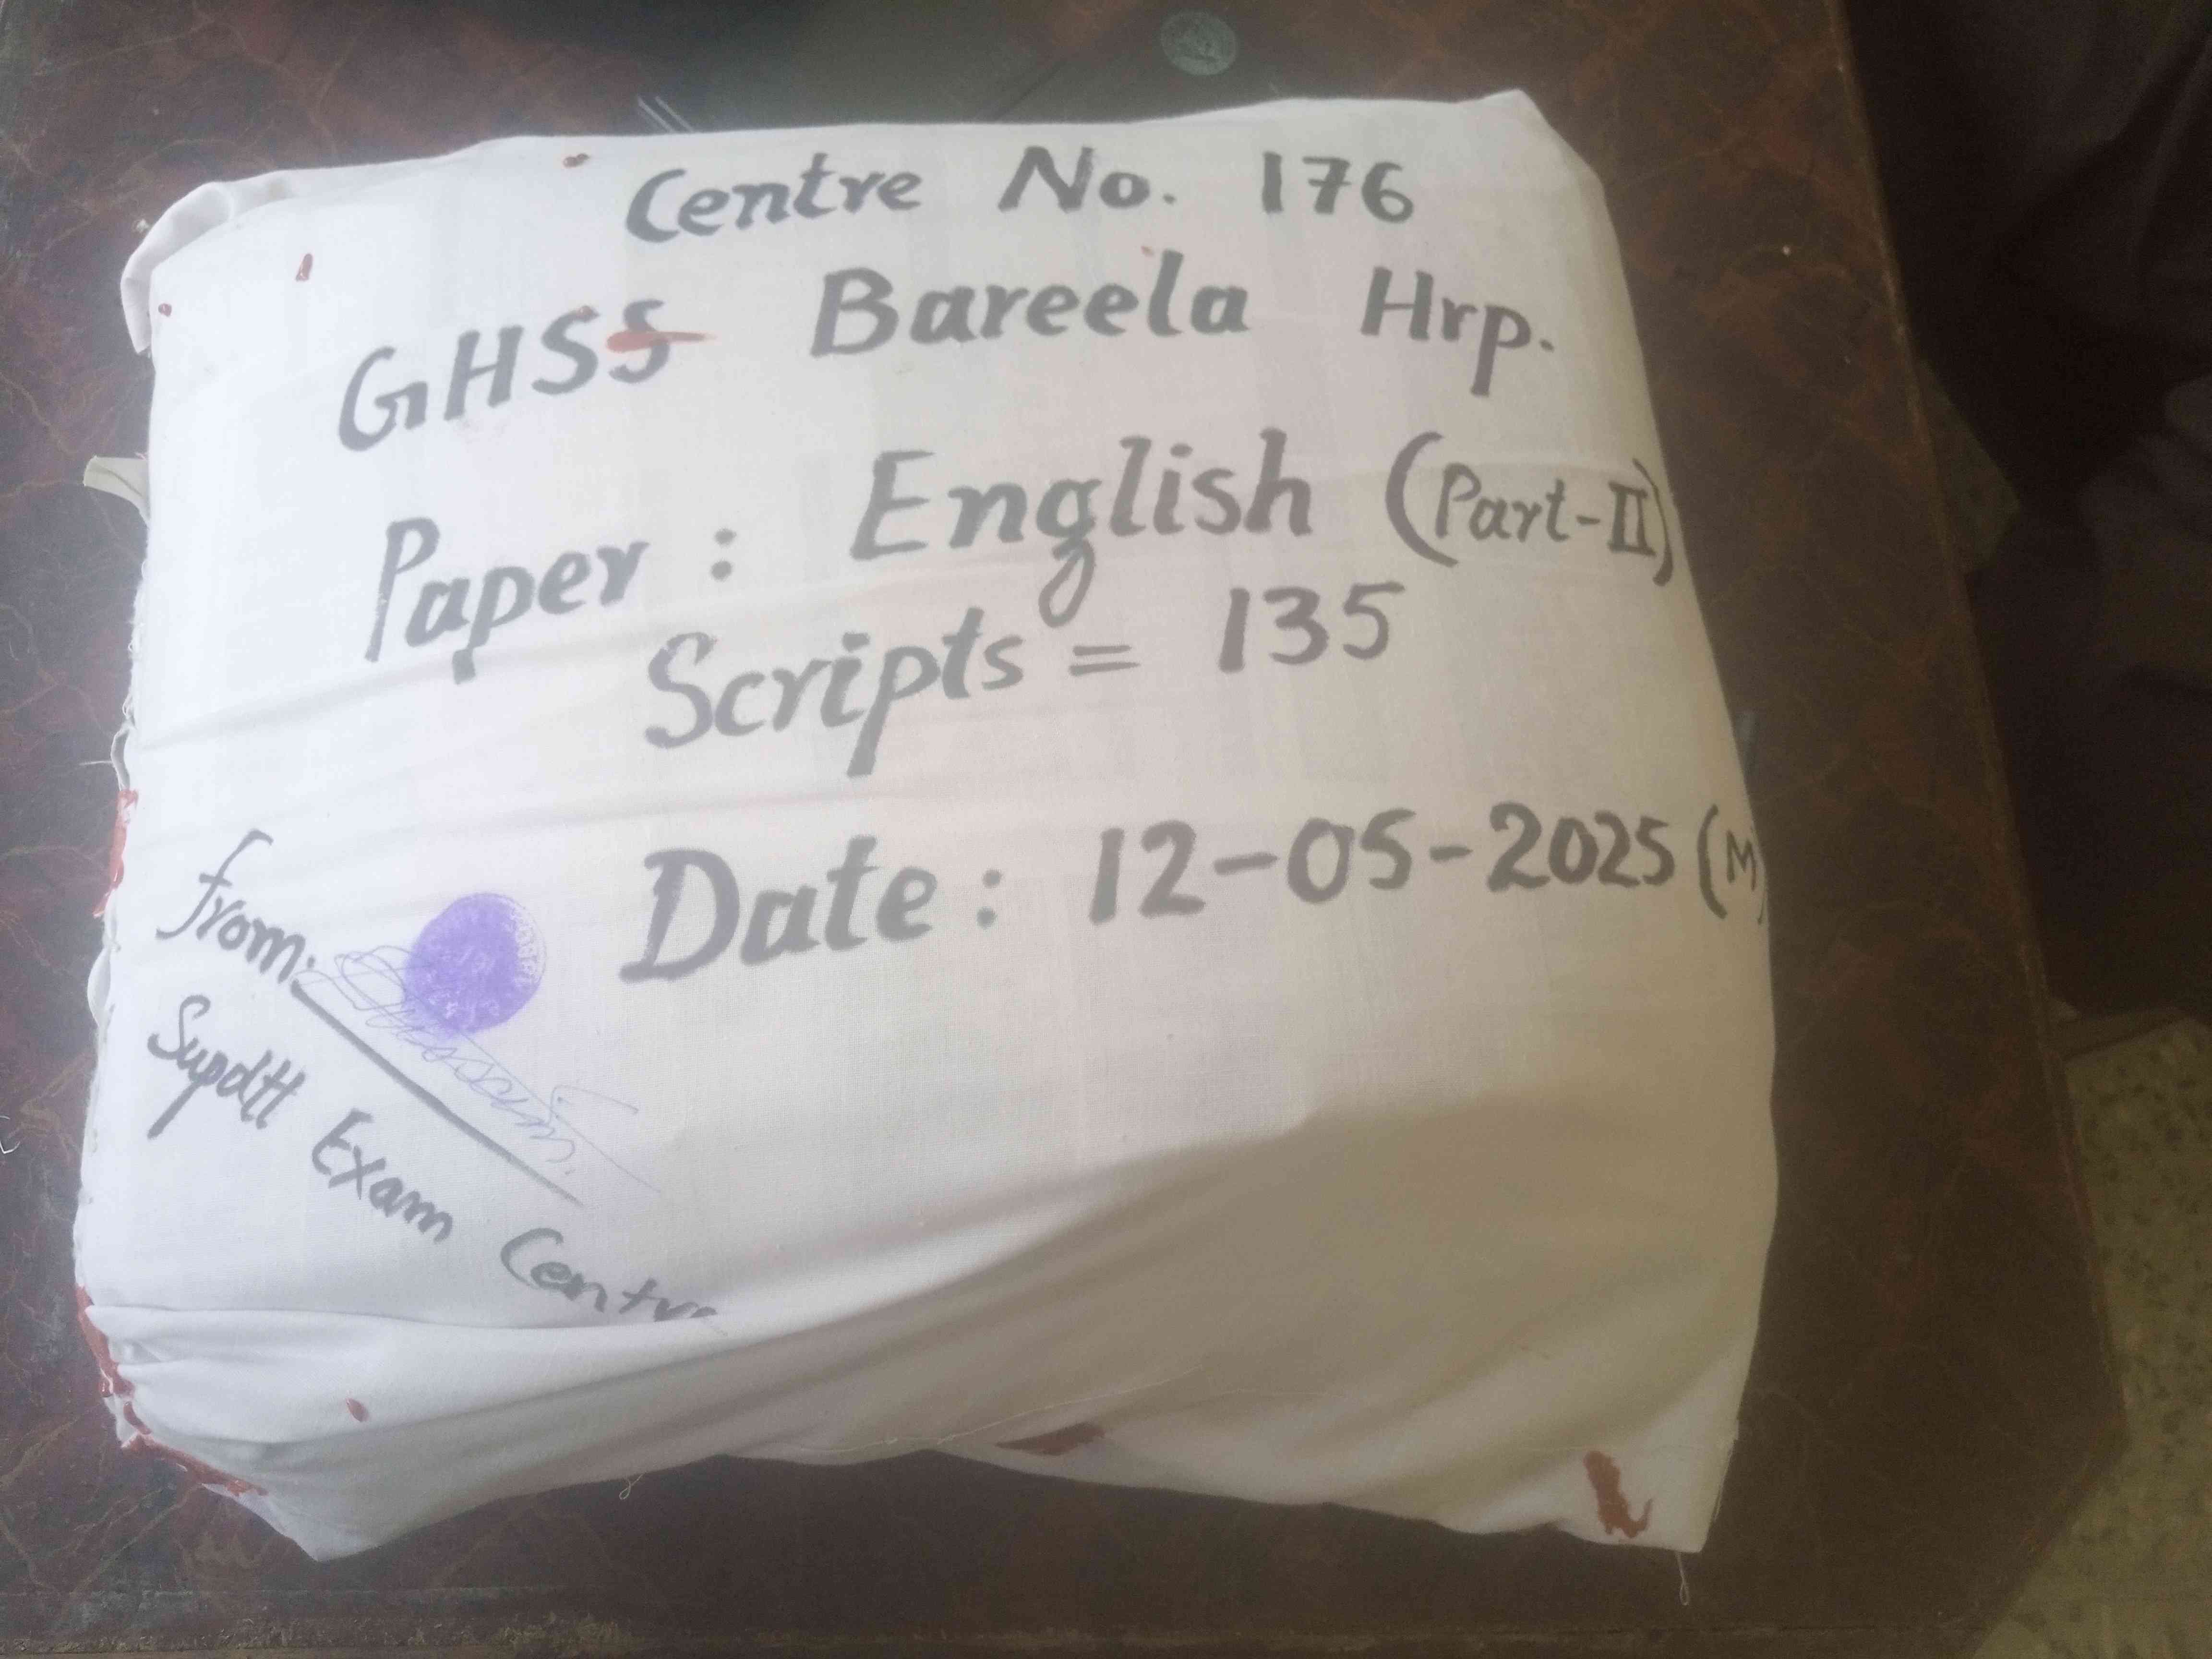 Centre No. 176
GHSS Bareela Hrp.
Paper : English (Part-II)
Scripts = 135
Date : 12-05-2025 (M)
from:
Supdtt Exam Centre